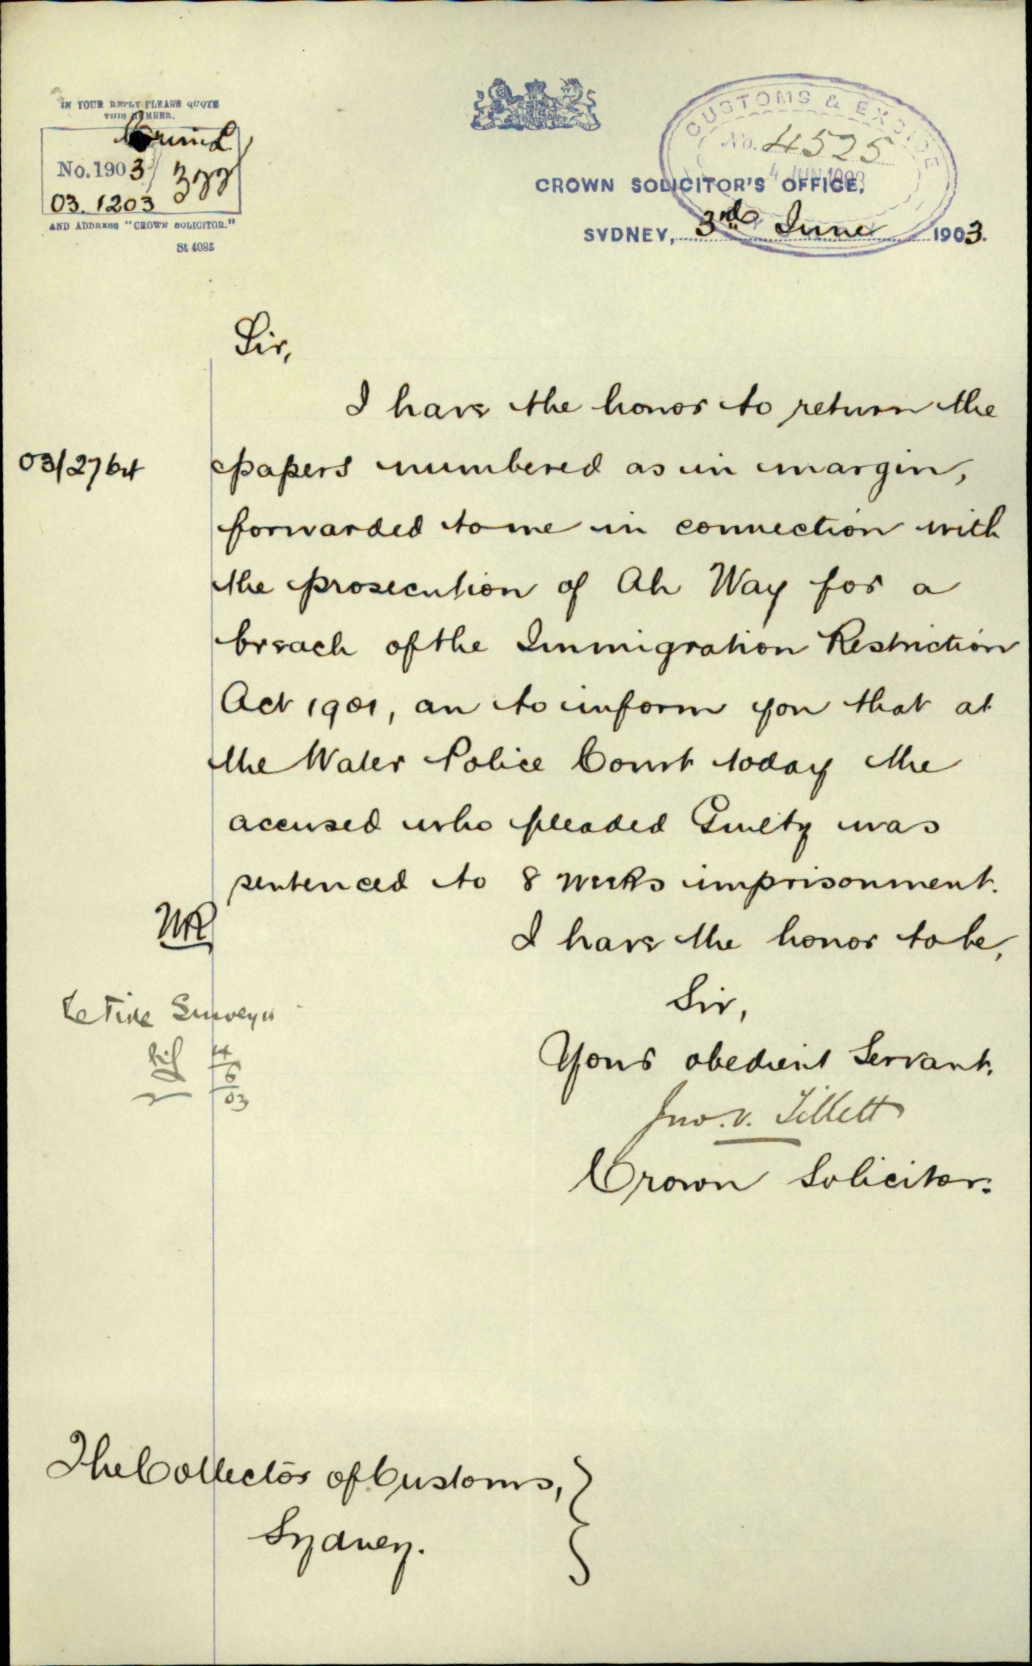 IN YOUR REPLY PLEASE QUOTE
THIS NUMBER.
No. 1903
03. 1203
AND ADDRESS "CROWN SOLICITOR."
St 4095
CUSTOMS & EXCISE
No. 4525
4 JUN 1903
CROWN SOLICITOR'S OFFICE,
SYDNEY, 3rd June 1903.
Sir,
I have the honor to return the
03/2764 papers numbered as in margin,
forwarded to me in connection with
the prosecution of Ah Way for a
breach of the Immigration Restriction
Act 1901, an to inform you that at
the Water Police Court today the
accused who pleaded Guilty was
sentenced to 8 weeks imprisonment.
I have the honor to be,
Sir,
Your obedient Servant.
Jno. V. Tillett
Crown Solicitor.
Tide Surveyor
4
6
03
The Collector of Customs,
Sydney.